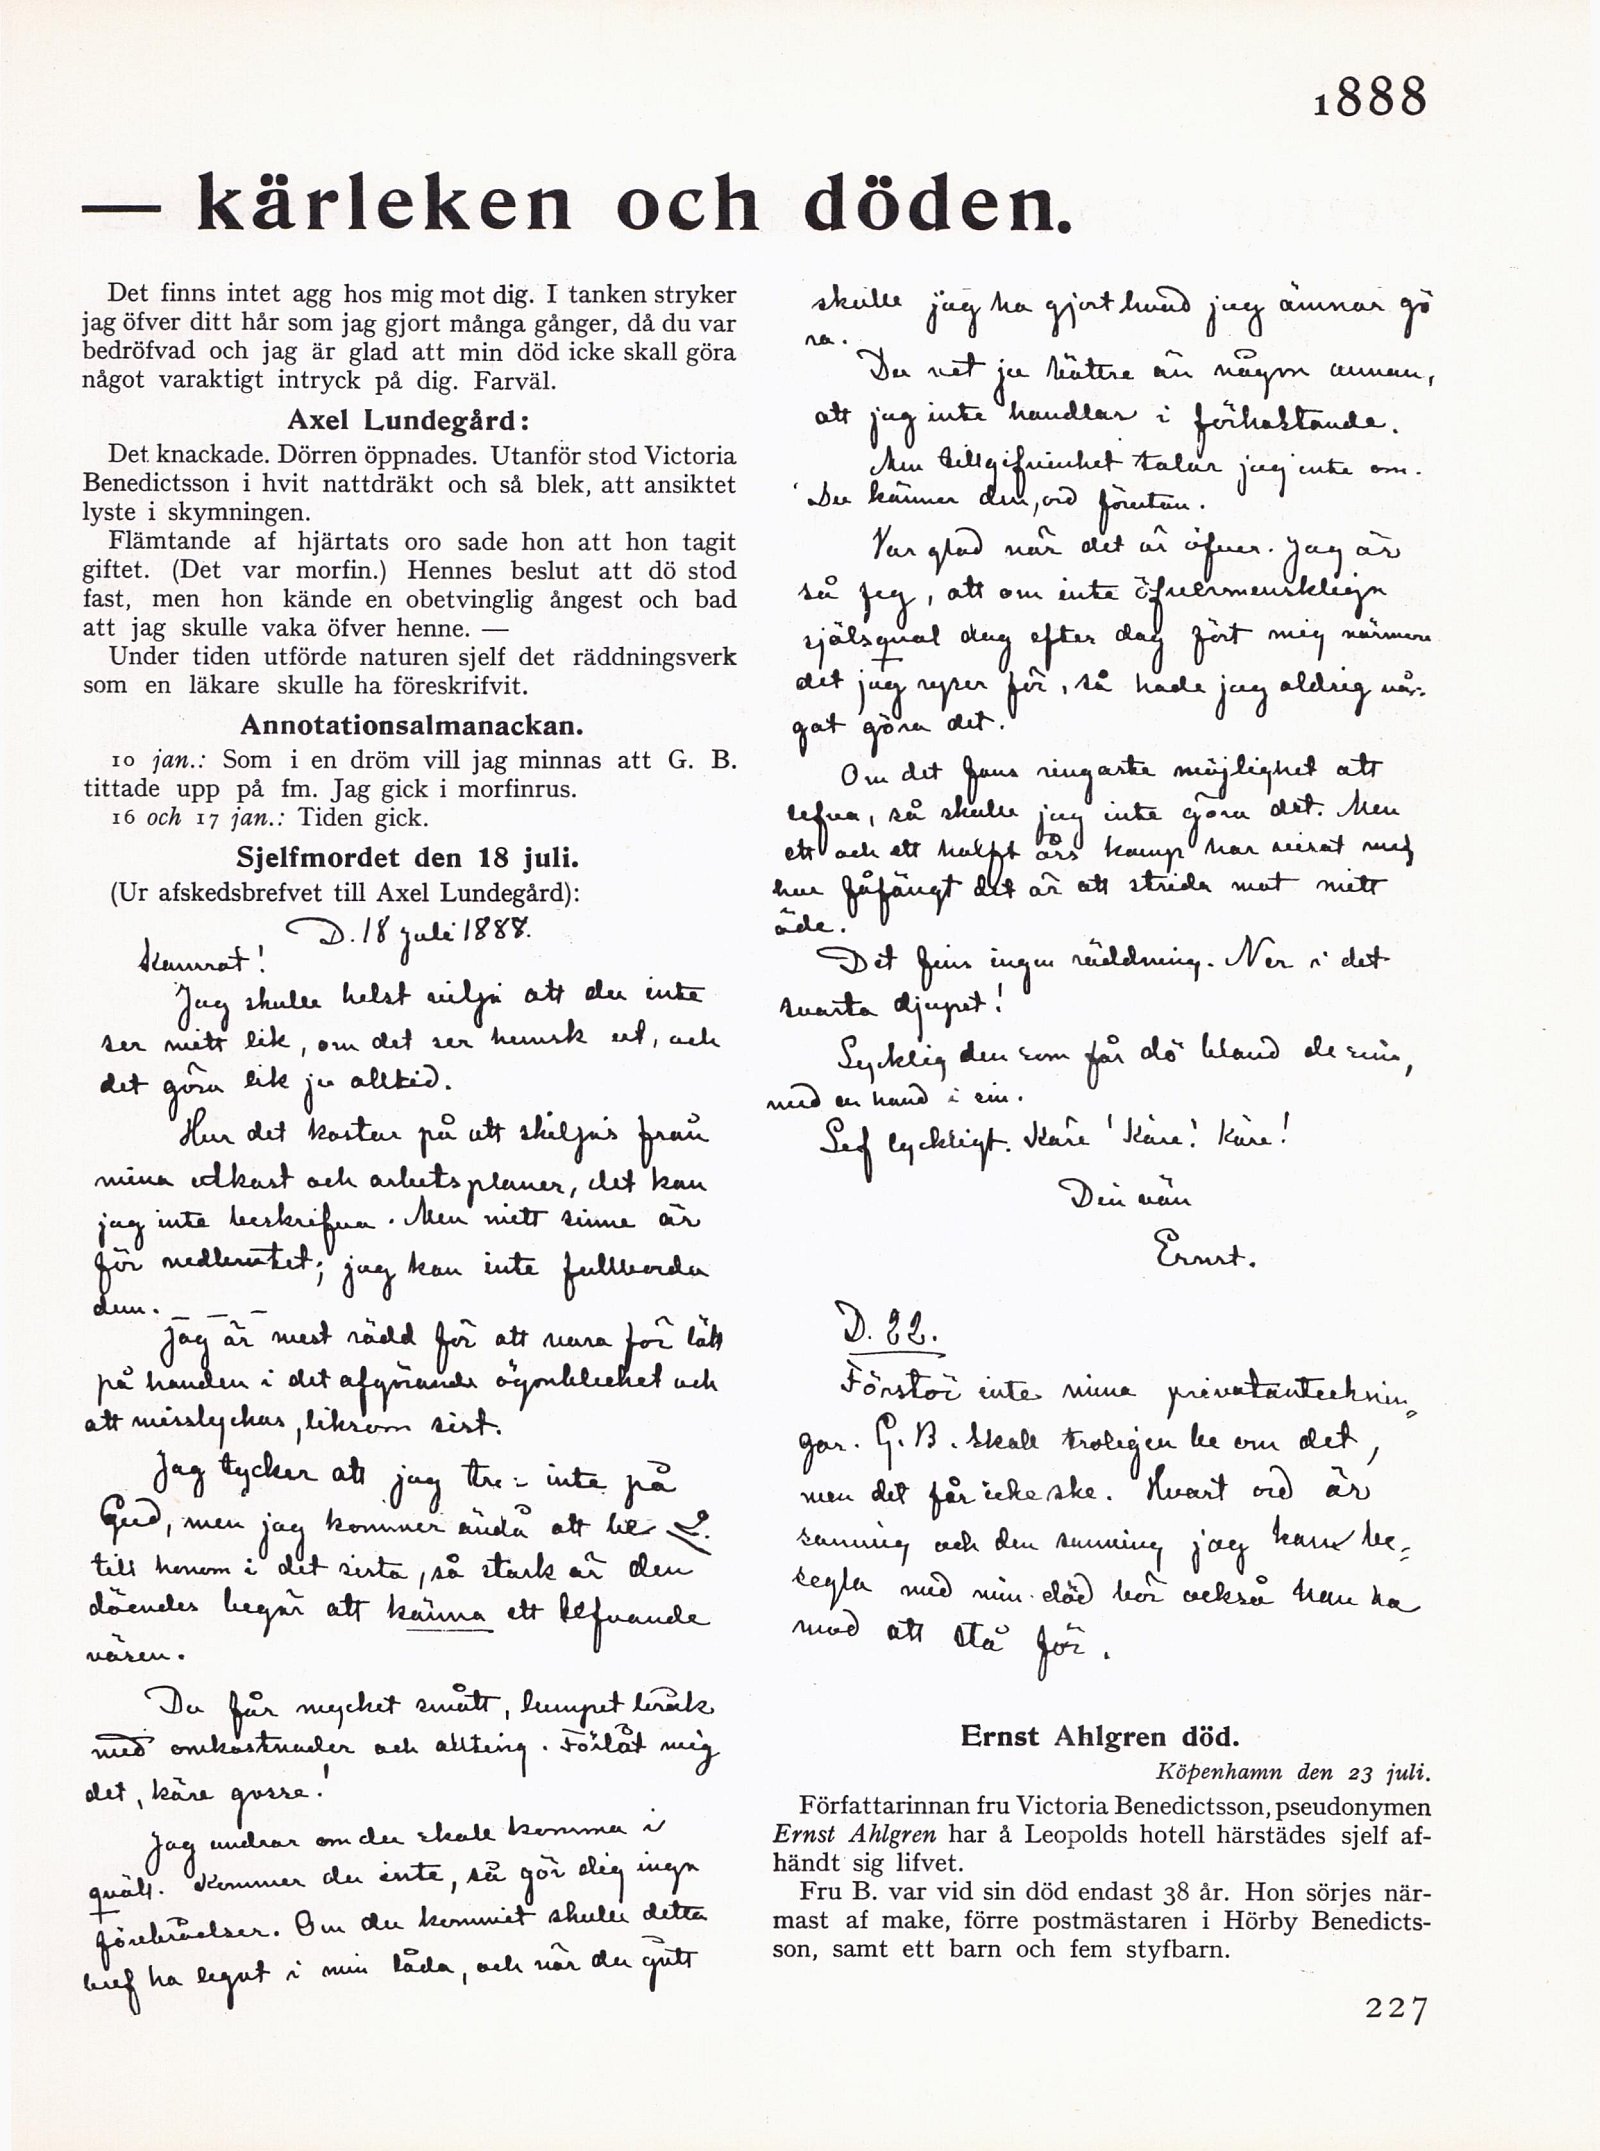 1888
— kärleken och döden.
Det finns intet agg hos mig mot dig. I tanken stryker
jag öfver ditt hår som jag gjort många gånger, då du var
bedröfvad och jag är glad att min död icke skall göra
något varaktigt intryck på dig. Farväl.
Axel Lundegård:
Det knackade. Dörren öppnades. Utanför stod Victoria
Benedictsson i hvit nattdräkt och så blek, att ansiktet
lyste i skymningen.
Flämtande af hjärtats oro sade hon att hon tagit
giftet. (Det var morfin.) Hennes beslut att dö stod
fast, men hon kände en obetvinglig ångest och bad
att jag skulle vaka öfver henne. —
Under tiden utförde naturen sjelf det räddningsverk
som en läkare skulle ha föreskrifvit.
Annotationsalmanackan.
10 jan.: Som i en dröm vill jag minnas att G. B.
tittade upp på fm. Jag gick i morfinrus.
16 och 17 jan.: Tiden gick.
Sjelfmordet den 18 juli.
(Ur afskedsbrefvet till Axel Lundegård):
D. 18 juli 1888.
Kamrat!
Jag skulle helst vilja att du inte
ser mitt lik, om det ser hemsk ut, och
det göra lik ju alltid.
Hur det kostar på att skiljas från
mina utkast och arbetsplaner, det kan
jag inte beskrifva. Men mitt sinne är
för nedbrutet; jag kan inte fullborda
dem. — — —
Jag är mest rädd för att vara för lätt
på handen i det afgörande ögonblicket och
att misslyckas, liksom sist.
Jag tycker att jag tror inte på
Gud, men jag kommer ändå att be
till honom i det sista, så stark är den
döendes begär att känna ett lefvande
väsen.
Du får mycket smått, lumpet bråk
med omkostnader och allting. Förlåt mig
det, käre gosse!
Jag undrar om du skall komma i
qväll. Kommer du inte, så gör dig inga
förebråelser. Om du kommit skulle detta
bref ha legat i min låda, och när du gått
skulle jag ha gjort hvad jag ämnar gö
ra.
Du vet ju bättre än någon annan,
att jag inte handlar i förhastande.
Men tillgifvenhet talar jag inte om.
Du känner den, ord förutan.
Var glad när det är öfver. Jag är
så feg, att om inte öfvermenskliga
själsqval dag efter dag fört mig närmare
det jag ryser för, så hade jag aldrig nå-
got göra det.
Om det fans ringaste möjlighet att
lefva, så skulle jag inte göra det. Men
ett och ett halft års kamp har visat mig
hur fåfängt det är att strida mot mitt
öde.
Det fins ingen räddning. Ner i det
svarta djupet!
Lycklig den som får dö bland de sina,
med en hand i sin.
Lef lyckligt. Käre! Käre! Käre!
Din vän
Ernst.
D. 22.
Förstör inte mina privatantecknin=
gar. G. B. skall troligen be om det,
men det får icke ske. Hvart ord är
sanning och den sanning jag kan be=
segla med min död bör också han ha
mod att stå för.
Ernst Ahlgren död.
Köpenhamn den 23 juli.
Författarinnan fru Victoria Benedictsson, pseudonymen
Ernst Ahlgren har å Leopolds hotell härstädes sjelf af-
händt sig lifvet.
Fru B. var vid sin död endast 38 år. Hon sörjes när-
mast af make, förre postmästaren i Hörby Benedicts-
son, samt ett barn och fem styfbarn.
227